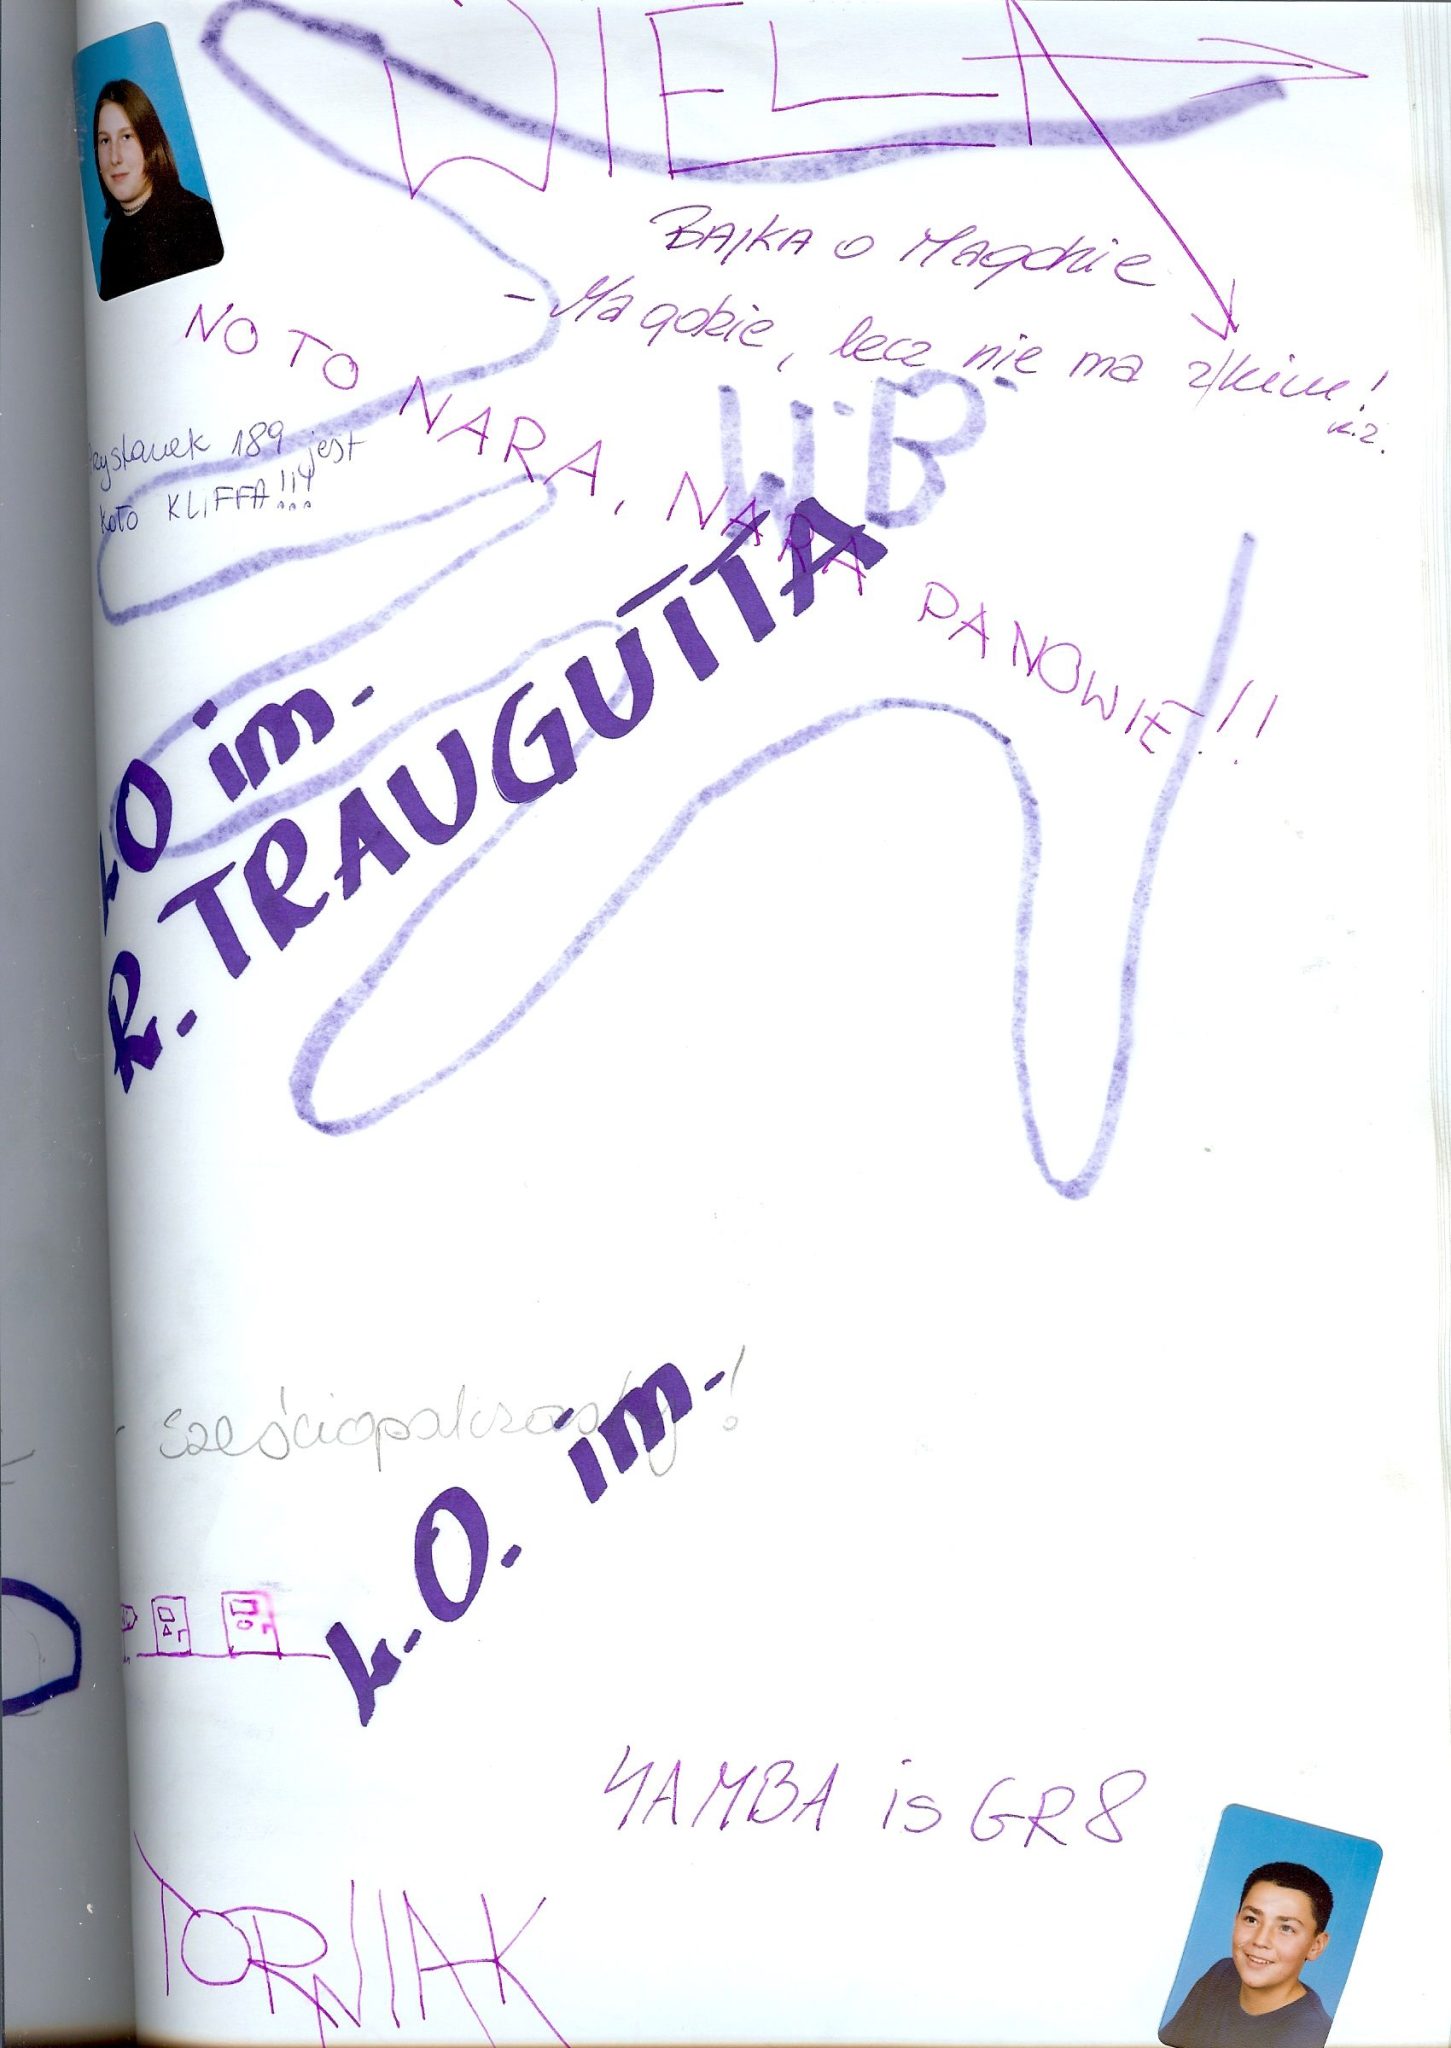 WIELA
BAJKA o Magdzie
- Ma gdzie, lecz nie ma z kim!
K.Z.
NO TO NARA, NARA PANOWIE!!
W.B.
Przystanek 189 jest
koło KLIFFA!!!
LO im.
R. TRAUGUTTA
- sześciopalczasty!
L.O. im.
YAMBA is GR8
TORNIAK